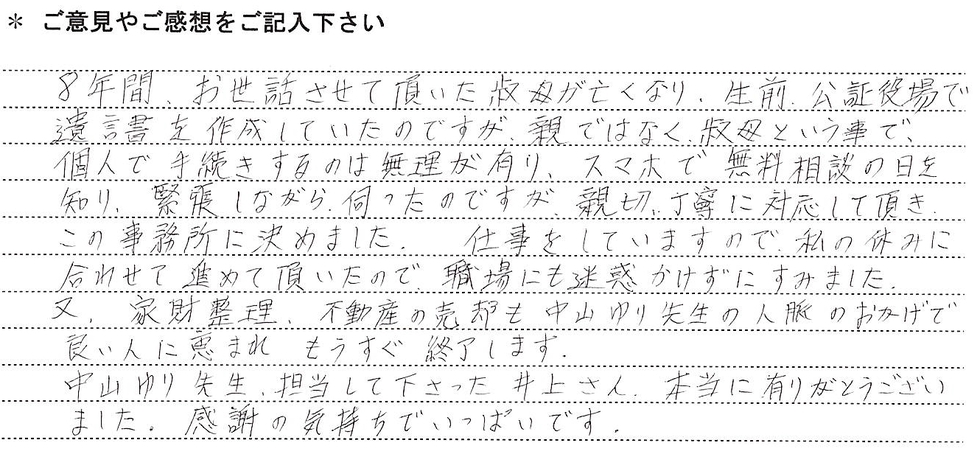 * ご意見やご感想をご記入下さい
8年間、お世話させて頂いた叔母が亡くなり、生前、公証役場で
遺言書を作成していたのですが親ではなく、叔母という事で、
個人で手続きするのは無理が有り、スマホで無料相談の日を
知り、緊張しながら、伺ったのですが、親切、丁寧に対応して頂き、
この事務所に決めました。 仕事をしていますので、私の休みに
合わせて進めて頂いたので、職場にも迷惑かけずにすみました。
又、家財整理、不動産の売却も中山ゆり先生の人脈のおかげで
良い人に恵まれ もうすぐ終了します。
中山ゆり先生、担当して下さった井上さん、本当に有りがとうござい
ました。感謝の気持ちでいっぱいです。